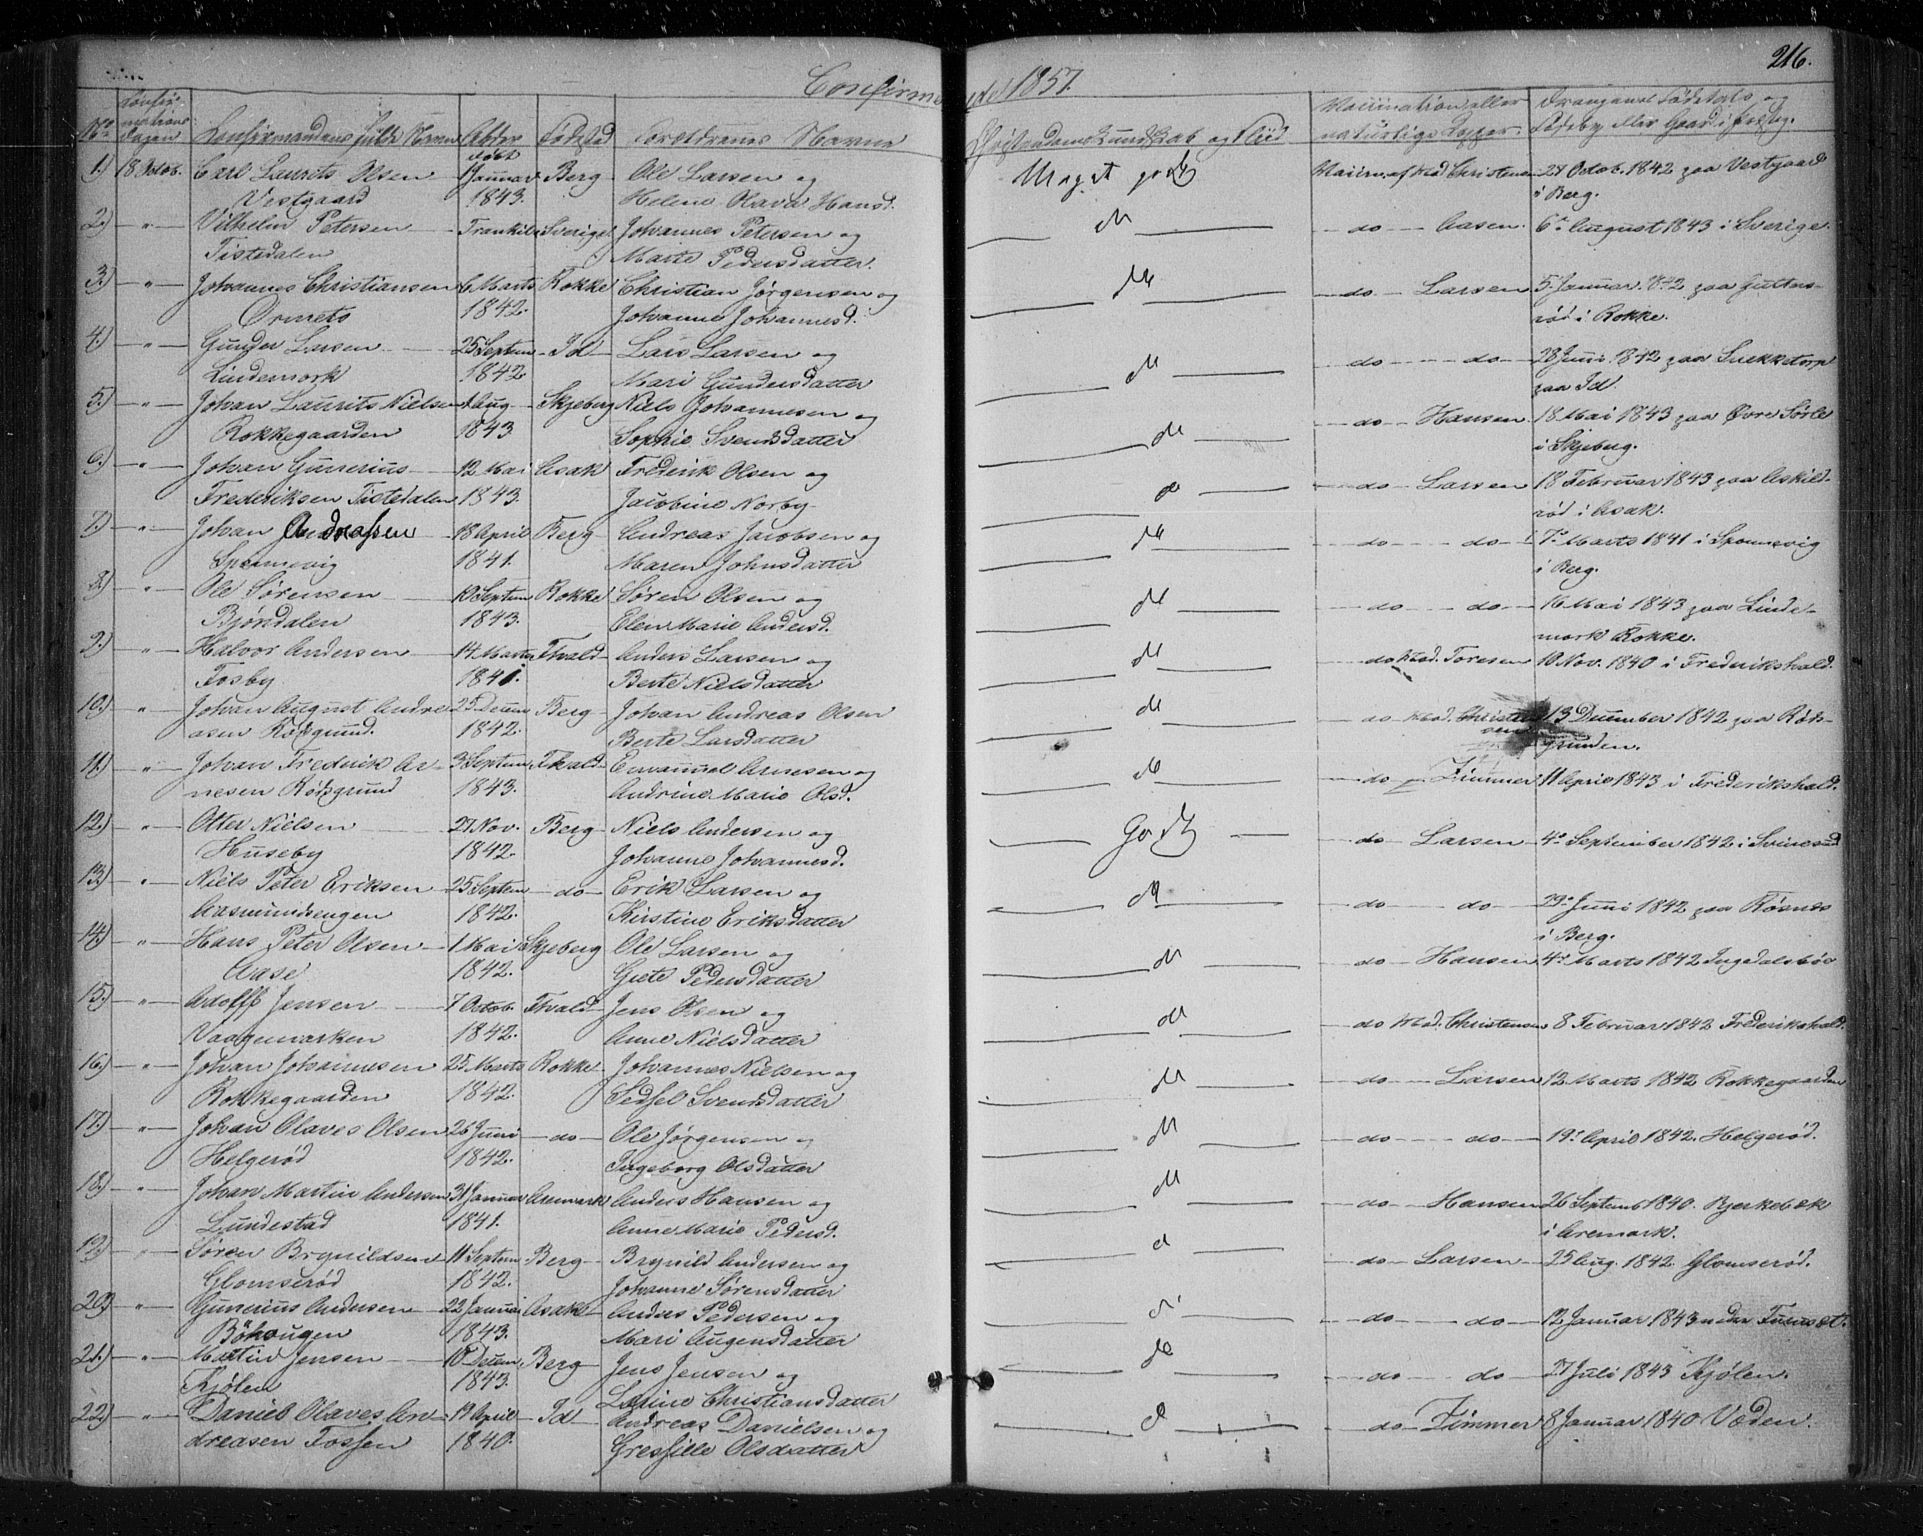 Confirmerede 1857.
216.
No Confirmations Dagen Confirmandens fulde Navn Alder Fødested Forældrenes Navne
Christendoms Kundskab og Flid
Vaccination eller naturlige Kopper.
Drengens Fødetals og Fødeby eller Gaard
1.) 18 Octob. Carl Laurits Olsen døbt Januar Berg Ole Larsen og Meget godt Vaccin. af Med Christensen 27 Octob. 1842 paa Vestgaard
Vestgaard 1843. Helene Hansd. i Berg.
2.) " Vilhelm Petersen Sverige Johannes Petersen og do do Aasen. 6 August 1843 i Sverige.
Tistedalen Marte Pedersdatter.
3.) " Johannes Christiansen 6 Marts Rokke Christian Jørgensen og do do Larsen 5 Januar 1842 paa Gutters-
Ørmets 1842. Johanne Johannesd. rød i Rokke.
4.) " Gunder Larsen 25 Septem Id Lars Larsen og do do do 28 Juni 1842 paa Snekketorp
Lindemork 1842 Mari Gundersdatter paa Id.
5.) " Johan Laurits Nielsen Aug Skjeberg Niels Johannesen og do do Hansen 18 Mai 1843 paa Øvre Sørle
Rokkegaarden 1843 Sophie Svendsdatter i Skjeberg.
6.) " Johan Gunerius 12 Mai Asak Frederik Olsen og do do Larsen 18 Februar 1843 paa Askild-
Frederiksen Tistedalen 1843. Jacobine Norby rød i Asak.
7.) " Johan Andreassen 18 April Berg Andreas Jacobsen og do do do 7 Marts 1841 i Sponnevig
Sponnevig 1841. Maren Johnsdatter i Berg.
8.) " Ole Sørensen 10 Septem Rokke Søren Olsen og do do do 16 Mai 1843 paa Linde-
Bjørndalen 1843. Elen Marie Andersd. mork Rokke.
9.) " Halvor Andersen 14 Marts Fhald Anders Larsen og do do Mad. Toresen 10 Nov. 1840 i Frederikshald.
Fosby 1841. Berte Nielsdatter
10.) " Johan August Andre- 25 Decem Berg Johan Andreas Olsen do do Mad. Christen- 13 December 1842 paa Røds-
asen Rødsgrund. 1842. Berte Larsdatter sen grunden.
11.) " Johan Frederik Ar- 3 Septem Fhald Emanuel Arnesen og do do Zimmer 11 April 1843 i Frederikshald.
nesen Rødsgrund 1843. Andrine Marie Olsd.
12.) " Otter Nielsen 27 Nov. Berg Niels Andersen og Godt do Larsen 4 September 1842 i Svinesund
Huseby 1842. Johanne Johannesd.
13.) " Niels Peter Eriksen 25 Septem do Erik Larsen og do do do 29 Juni 1842 paa Røsnes
Aasmundsengen 1842. Kirstine Eriksdatter i Berg.
14.) " Hans Peter Olsen 1 Mai Skjeberg Ole Larsen og do do Hansen 4 Marts 1842 Ingedalsböe
Aase 1842. Grete Pedersdatter
15.) " Adolff Jensen 7 Octob. Fhald Jens Olsen og do do Mad. Christensen 8 Februar 1842 Frederikshald.
Vaagemarken 1842. Anne Nielsdatter
16.) " Johan Johannesen 25 Marts Rokke Johannes Nielsen og do do Larsen 12 Marts 1842 Rokkegaarden
Rokkegaarden 1842. Sidsel Svendsdatter
17.) " Johan Olaves Olsen 26 Juni do Ole Jørgensen og do do do 19 April 1842. Helgerød.
Helgerød 1842. Ingeborg Olsdatter
18.) " Johan Martin Andersen 31 Januar Aremark Anders Hansen og do do Hansen 26 Septemb 1840. Bjerkebæk
Lundestad 1841. Anne Marie Pedersd. i Aremark.
19.) " Søren Brynildsen 11 Septem Berg Brynild Andersen og do do Larsen 25 Aug. 1842. Glomserød.
Glomserød 1842. Johanne Sørensdatter
20.) " Gunerius Andersen 22 Januar Asak Anders Pedersen og do do do 12 Januar 1843 under Furuset.
Böhaugen 1843. Mari Augensdatter
21.) " Martin Jensen 10 Decem. Berg Jens Jensen og do do do 27 Juli 1843 Kjølen
Kjølen 1843. Larine Christiansdatter
22.) " Daniel Olaves An- 19 April Id Andreas Danielsen og do do Zimmer 8 Januar 1840 Væden.
dreasen Fossen 1840. Olsdatter